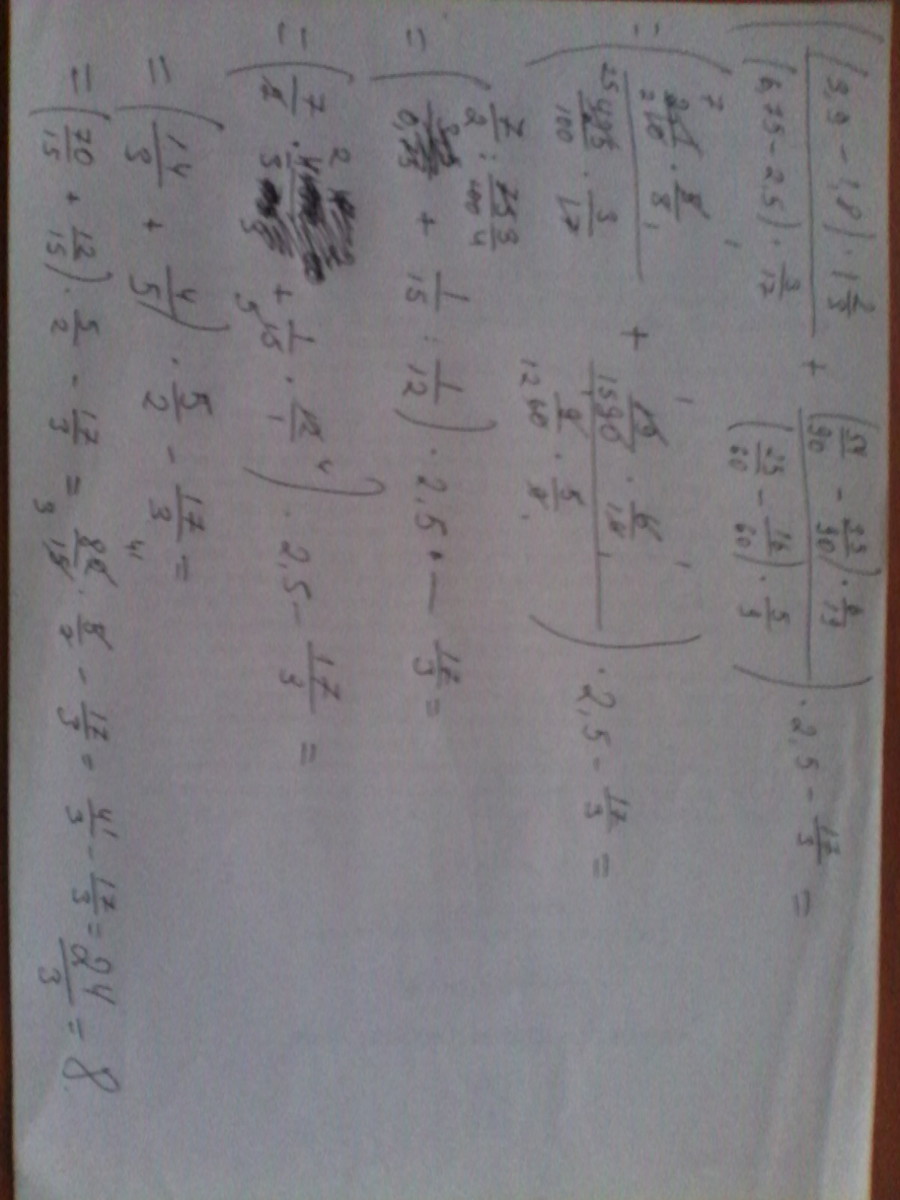 ( (3,9 - 1,8) · 1 2/3 / (6,75 - 2,5) · 3/17 + (54/90 - 35/90) · 6/19 / (23/60 - 14/60) · 5/3 ) · 2,5 - 17/3 =
= ( 21/10 · 5/3 / 425/100 · 3/17 + 19/90 · 6/19 / 9/60 · 5/9 ) · 2,5 - 17/3 =
= ( 7/2 : 3/4 + 1/15 : 1/12 ) · 2,5 - 17/3 =
= ( 7/2 · 4/3 + 1/15 · 12/1 ) · 2,5 - 17/3 =
= ( 14/3 + 4/5 ) · 5/2 - 17/3 =
= ( 70/15 + 12/15 ) · 5/2 - 17/3 = 82/15 · 5/2 - 17/3 = 41/3 - 17/3 = 24/3 = 8